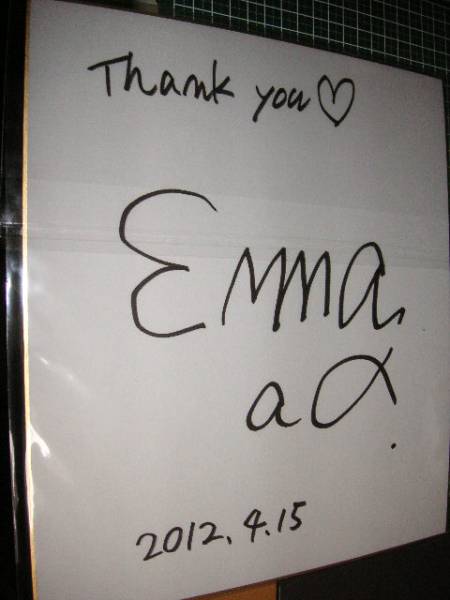 Thank you♡
Emma
a α.
2012.4.15